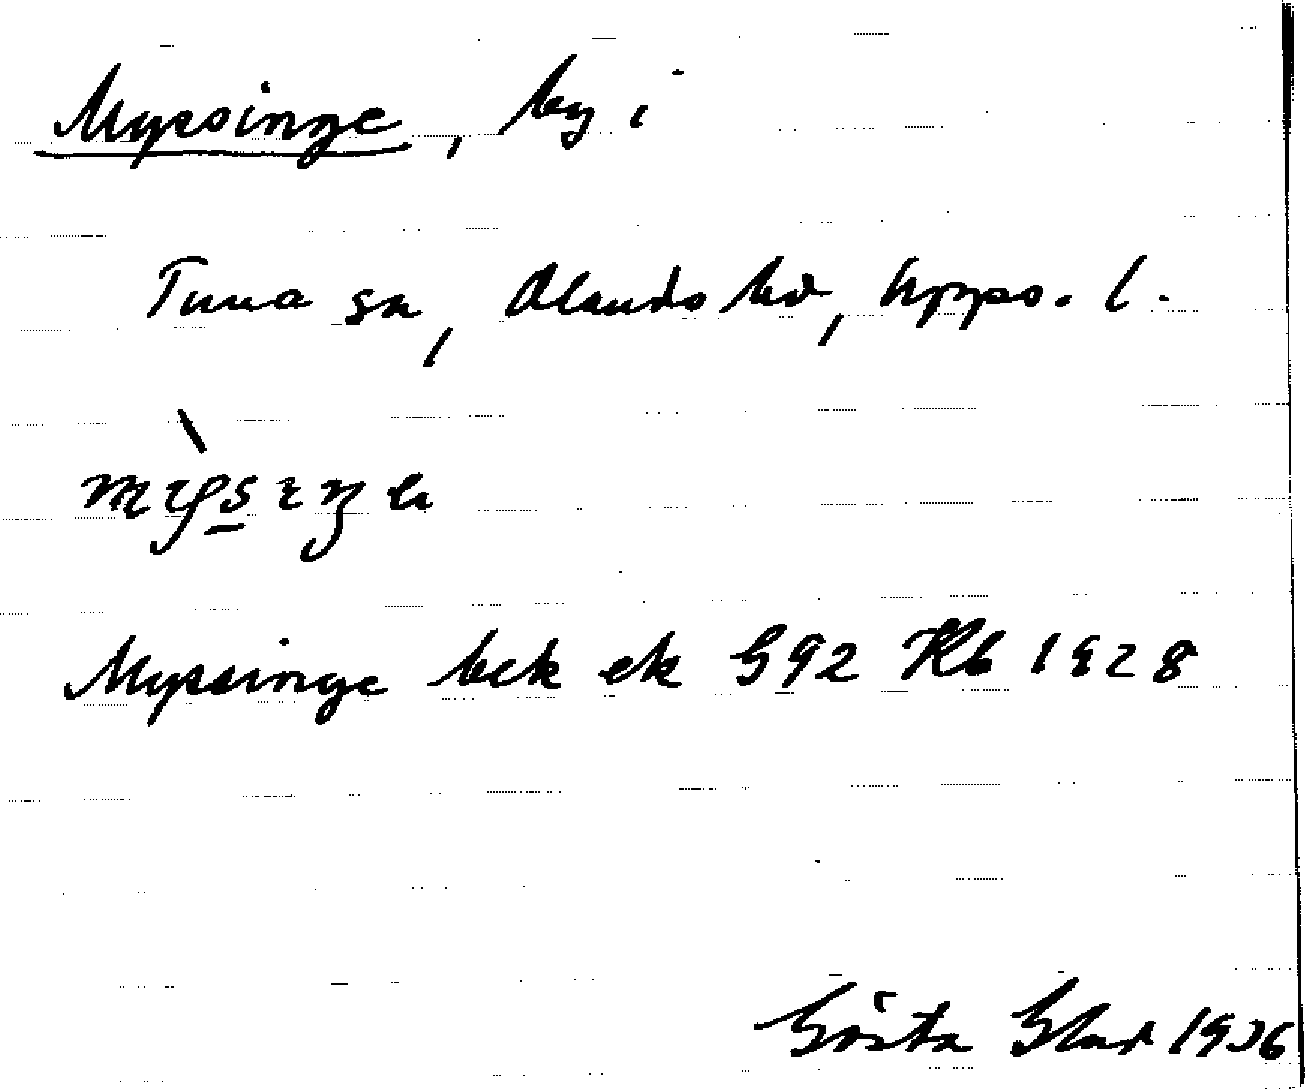 Myssinge, by i
Tuna sn, Olands hd, Upps. l.
Myssinge bek ek 592 Kb 1928
Gösta Blad 1936